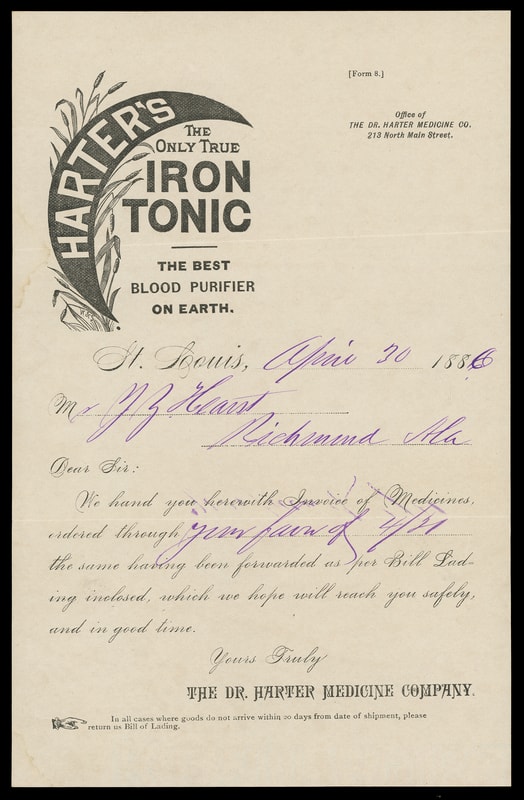 [Form 8.]
Office of
THE DR. HARTER MEDICINE CO.
213 North Main Street.
HARTER'S
THE
ONLY TRUE
IRON
TONIC
THE BEST
BLOOD PURIFIER
ON EARTH.
St. Louis, April 30 1886
Mr Hearst
Richmond Ala
Dear Sir:
We hand you herewith Invoice of Medicines,
ordered through your favor of 4/21
the same having been forwarded as per Bill Lad-
ing inclosed, which we hope will reach you safely,
and in good time.
Yours Truly
THE DR. HARTER MEDICINE COMPANY.
In all cases where goods do not arrive within 20 days from date of shipment, please
return us Bill of Lading.